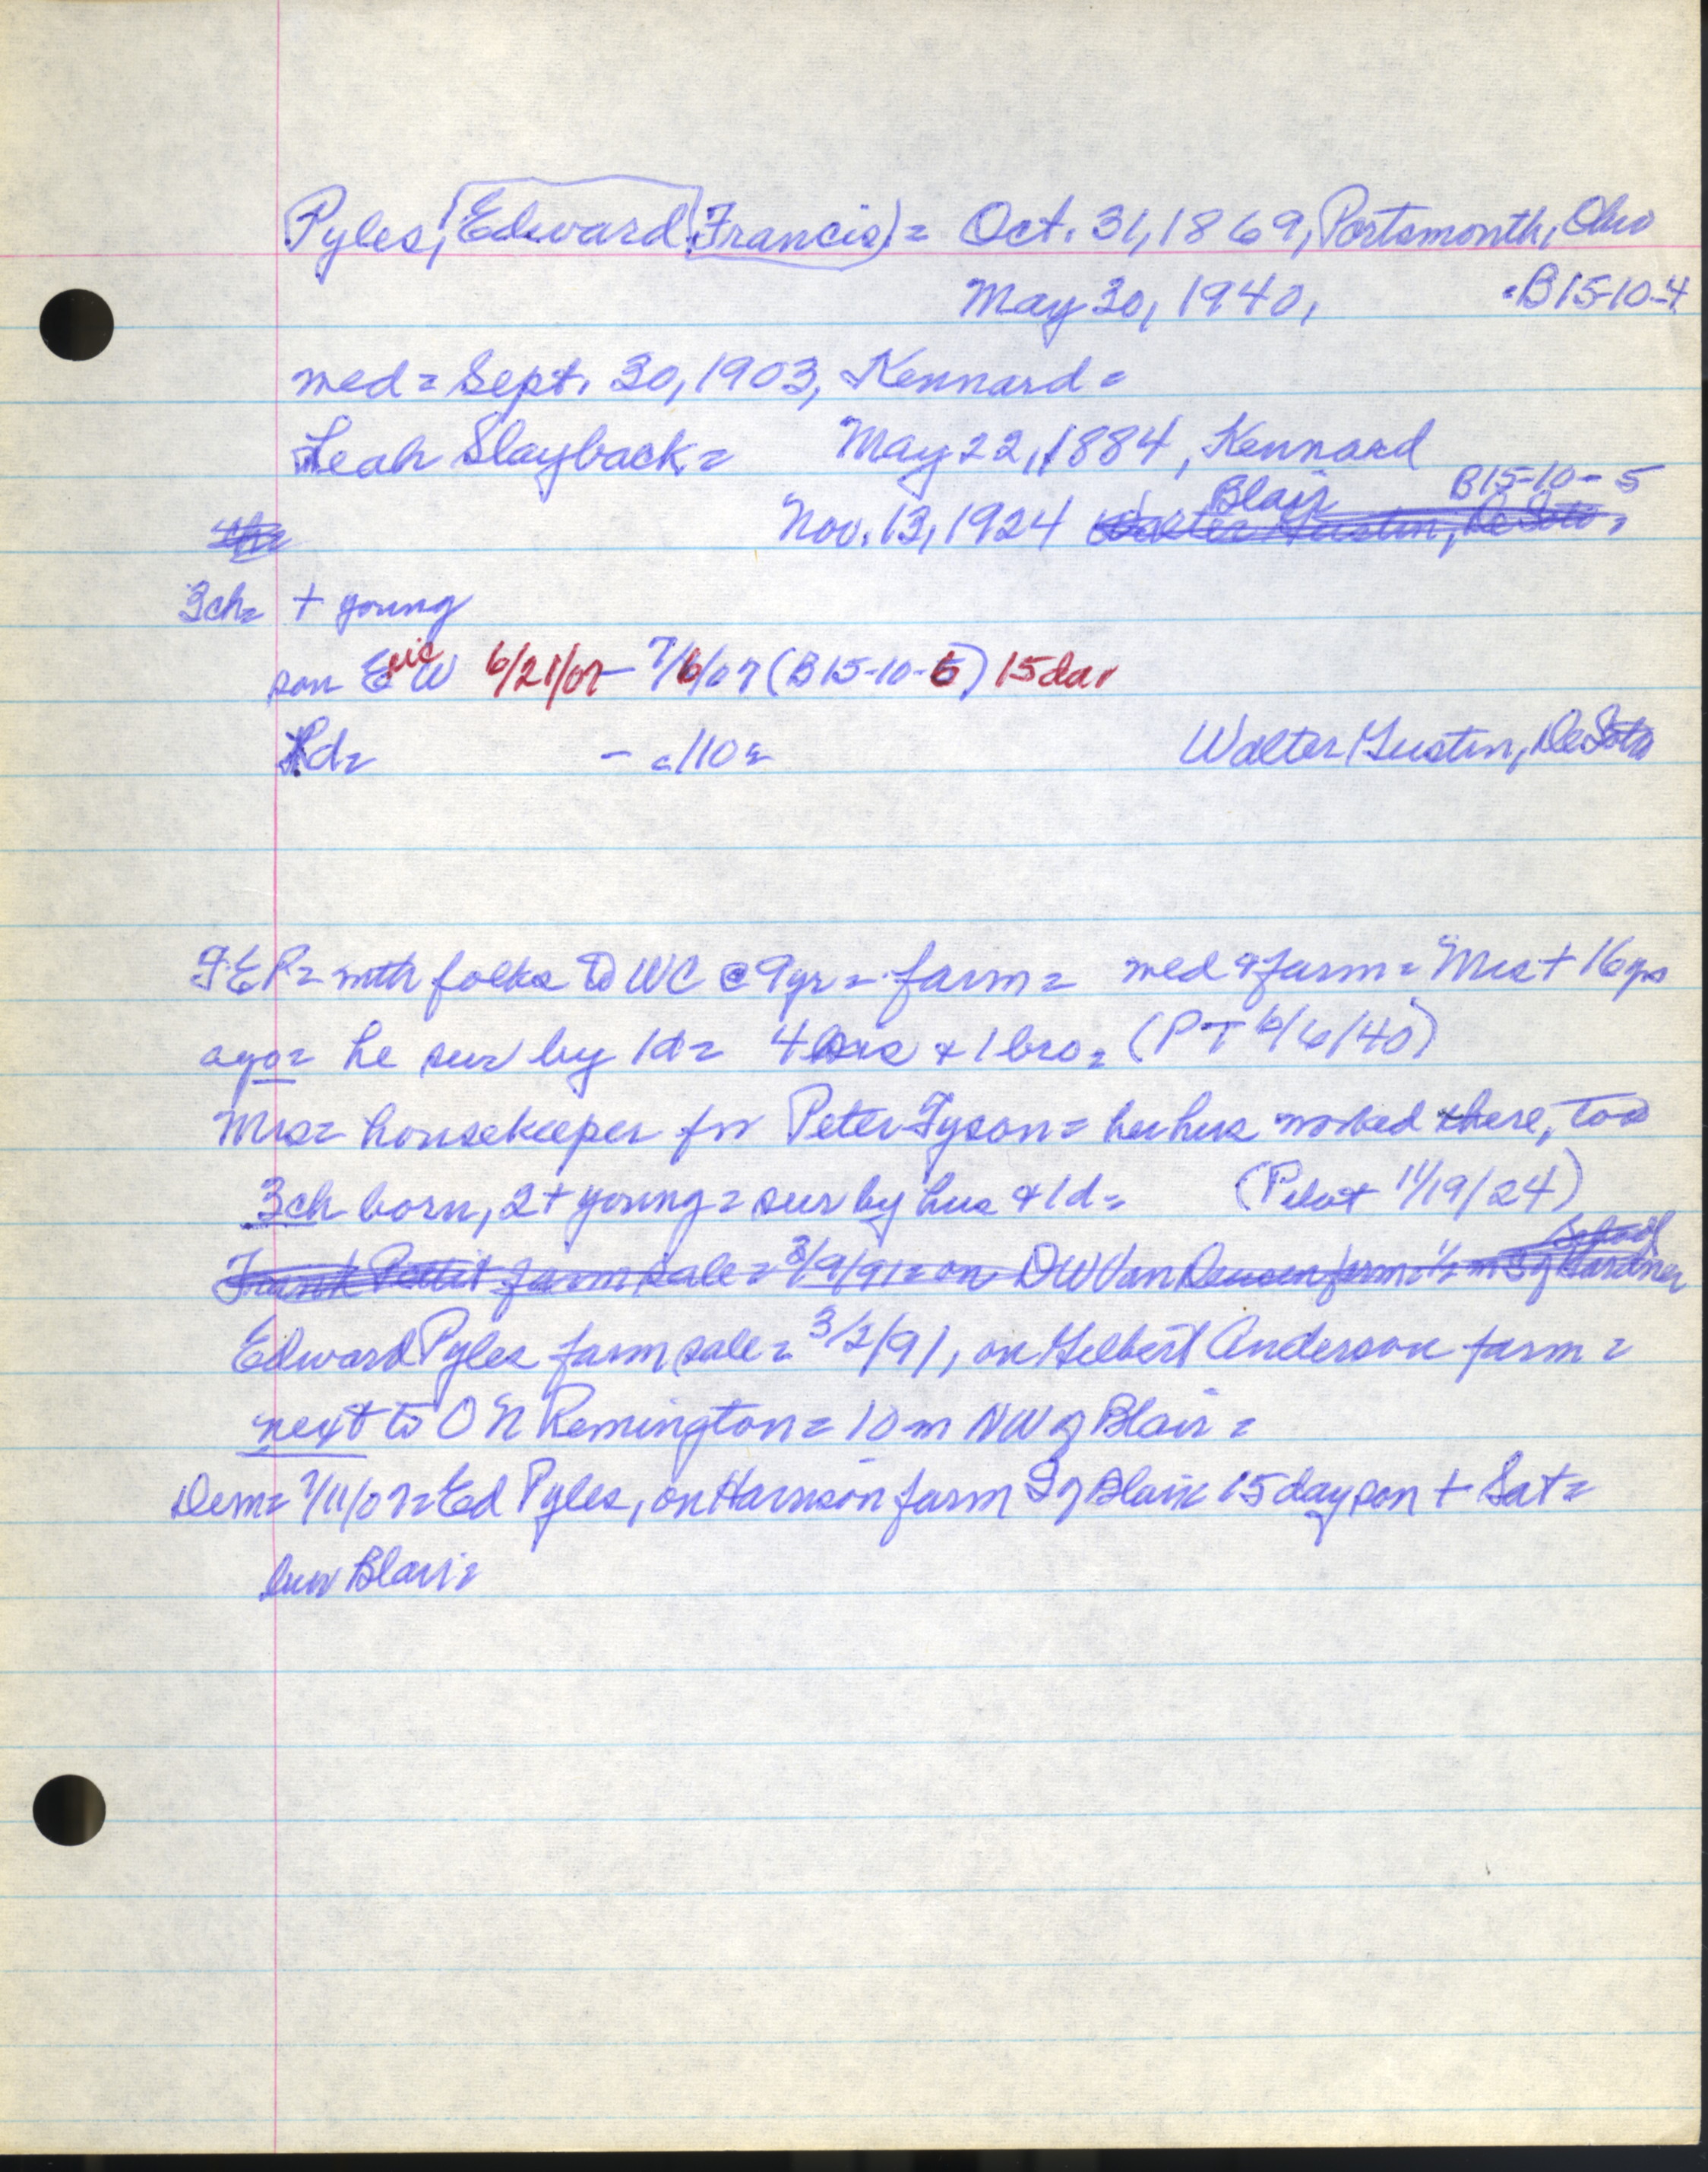 Pyles, (Edward Francis) = Oct. 31, 1869, Portsmonth, Ohio
May 30, 1940, B15-10-4
med = Sept. 30, 1903, Kennard =
Leah Slayback = May 22, 1884, Kennard
Nov. 13, 1924 Blair B15-10-5
Walter Gustin, De Soto,
3ch= + young
son E W 6/21/07 - 7/6/07 (B15-10-6) 15 da
d= - =110= Walter Gustin, De Soto
FEP= with folks to WC @ 9yr = farm = med & farm = Mrs + 16 yrs
ago = he sur by 1d = 4 sis & 1 bro = (PT 6/6/40)
Mrs = housekeeper for Peter Tyson = her hus worked there, too
3ch born, 2 + young = sur by hus & 1d = (Pilot 11/19/24)
Frank Pettit farm sale = 3/9/91 = on DW Van Deusen farm = 1/2 m S of Gardner School
Edward Pyles farm sale = 3/2/91, on Gilbert Anderson farm =
next to O N Remington = 10 m NW of Blair =
Dem = 7/11/07 = Ed Pyles, on Harrison farm S of Blair 15 day son + Sat =
bur Blair =